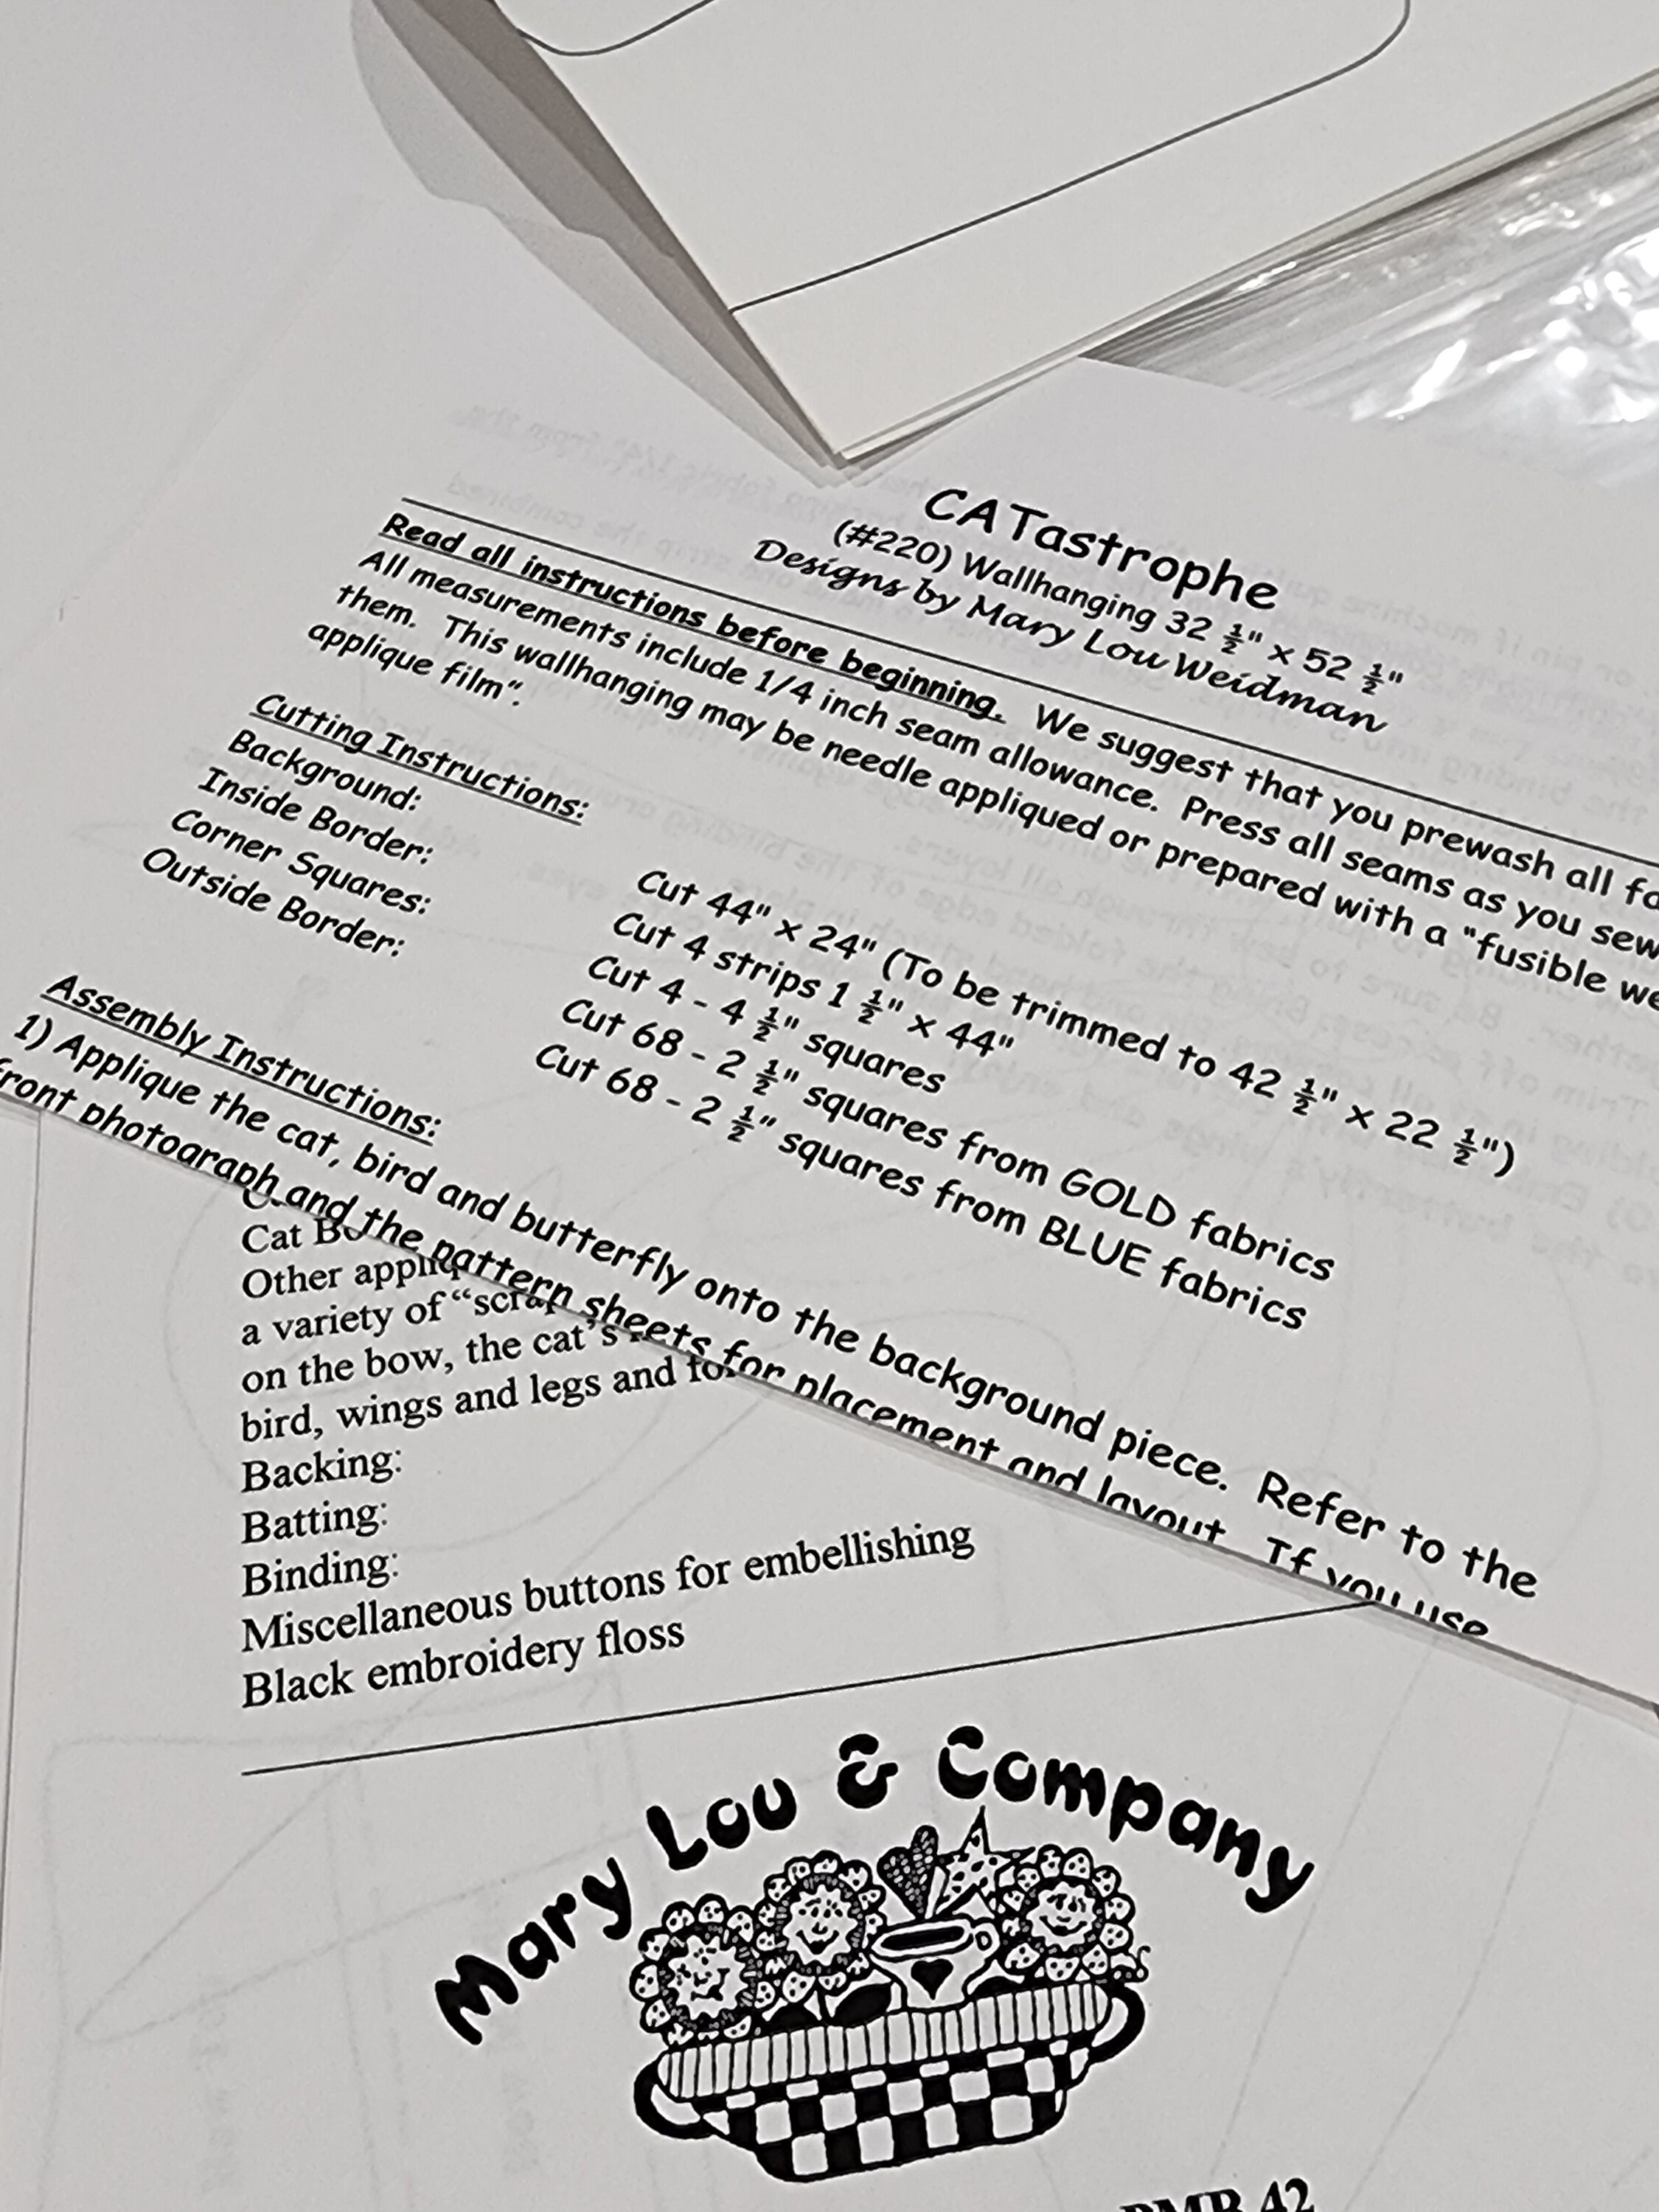 CATastrophe
(#220) Wallhanging 32 ½" x 52 ½"
Designs by Mary Lou Weidman
Read all instructions before beginning. We suggest that you prewash all
All measurements include 1/4 inch seam allowance. Press all seams as you sew
them. This wallhanging may be needle appliqued or prepared with a "fusible
applique film".
Cutting Instructions:
Background: Cut 44" x 24" (To be trimmed to 42 ½" x 22 ½")
Inside Border: Cut 4 strips 1 ½" x 44"
Corner Squares: Cut 4 - 4 ½" squares
Outside Border: Cut 68 - 2 ½" squares from GOLD fabrics
Cut 68 - 2 ½" squares from BLUE fabrics
Assembly Instructions:
1) Applique the cat, bird and butterfly onto the background piece. Refer to the
front photograph and the pattern sheets for placement and layout. If you use
Cat
Other
a variety of
on the bow, the cat's
bird, wings and legs and
Backing:
Batting:
Binding:
Miscellaneous buttons for embellishing
Black embroidery floss
Mary Lou & Company
PMB 42